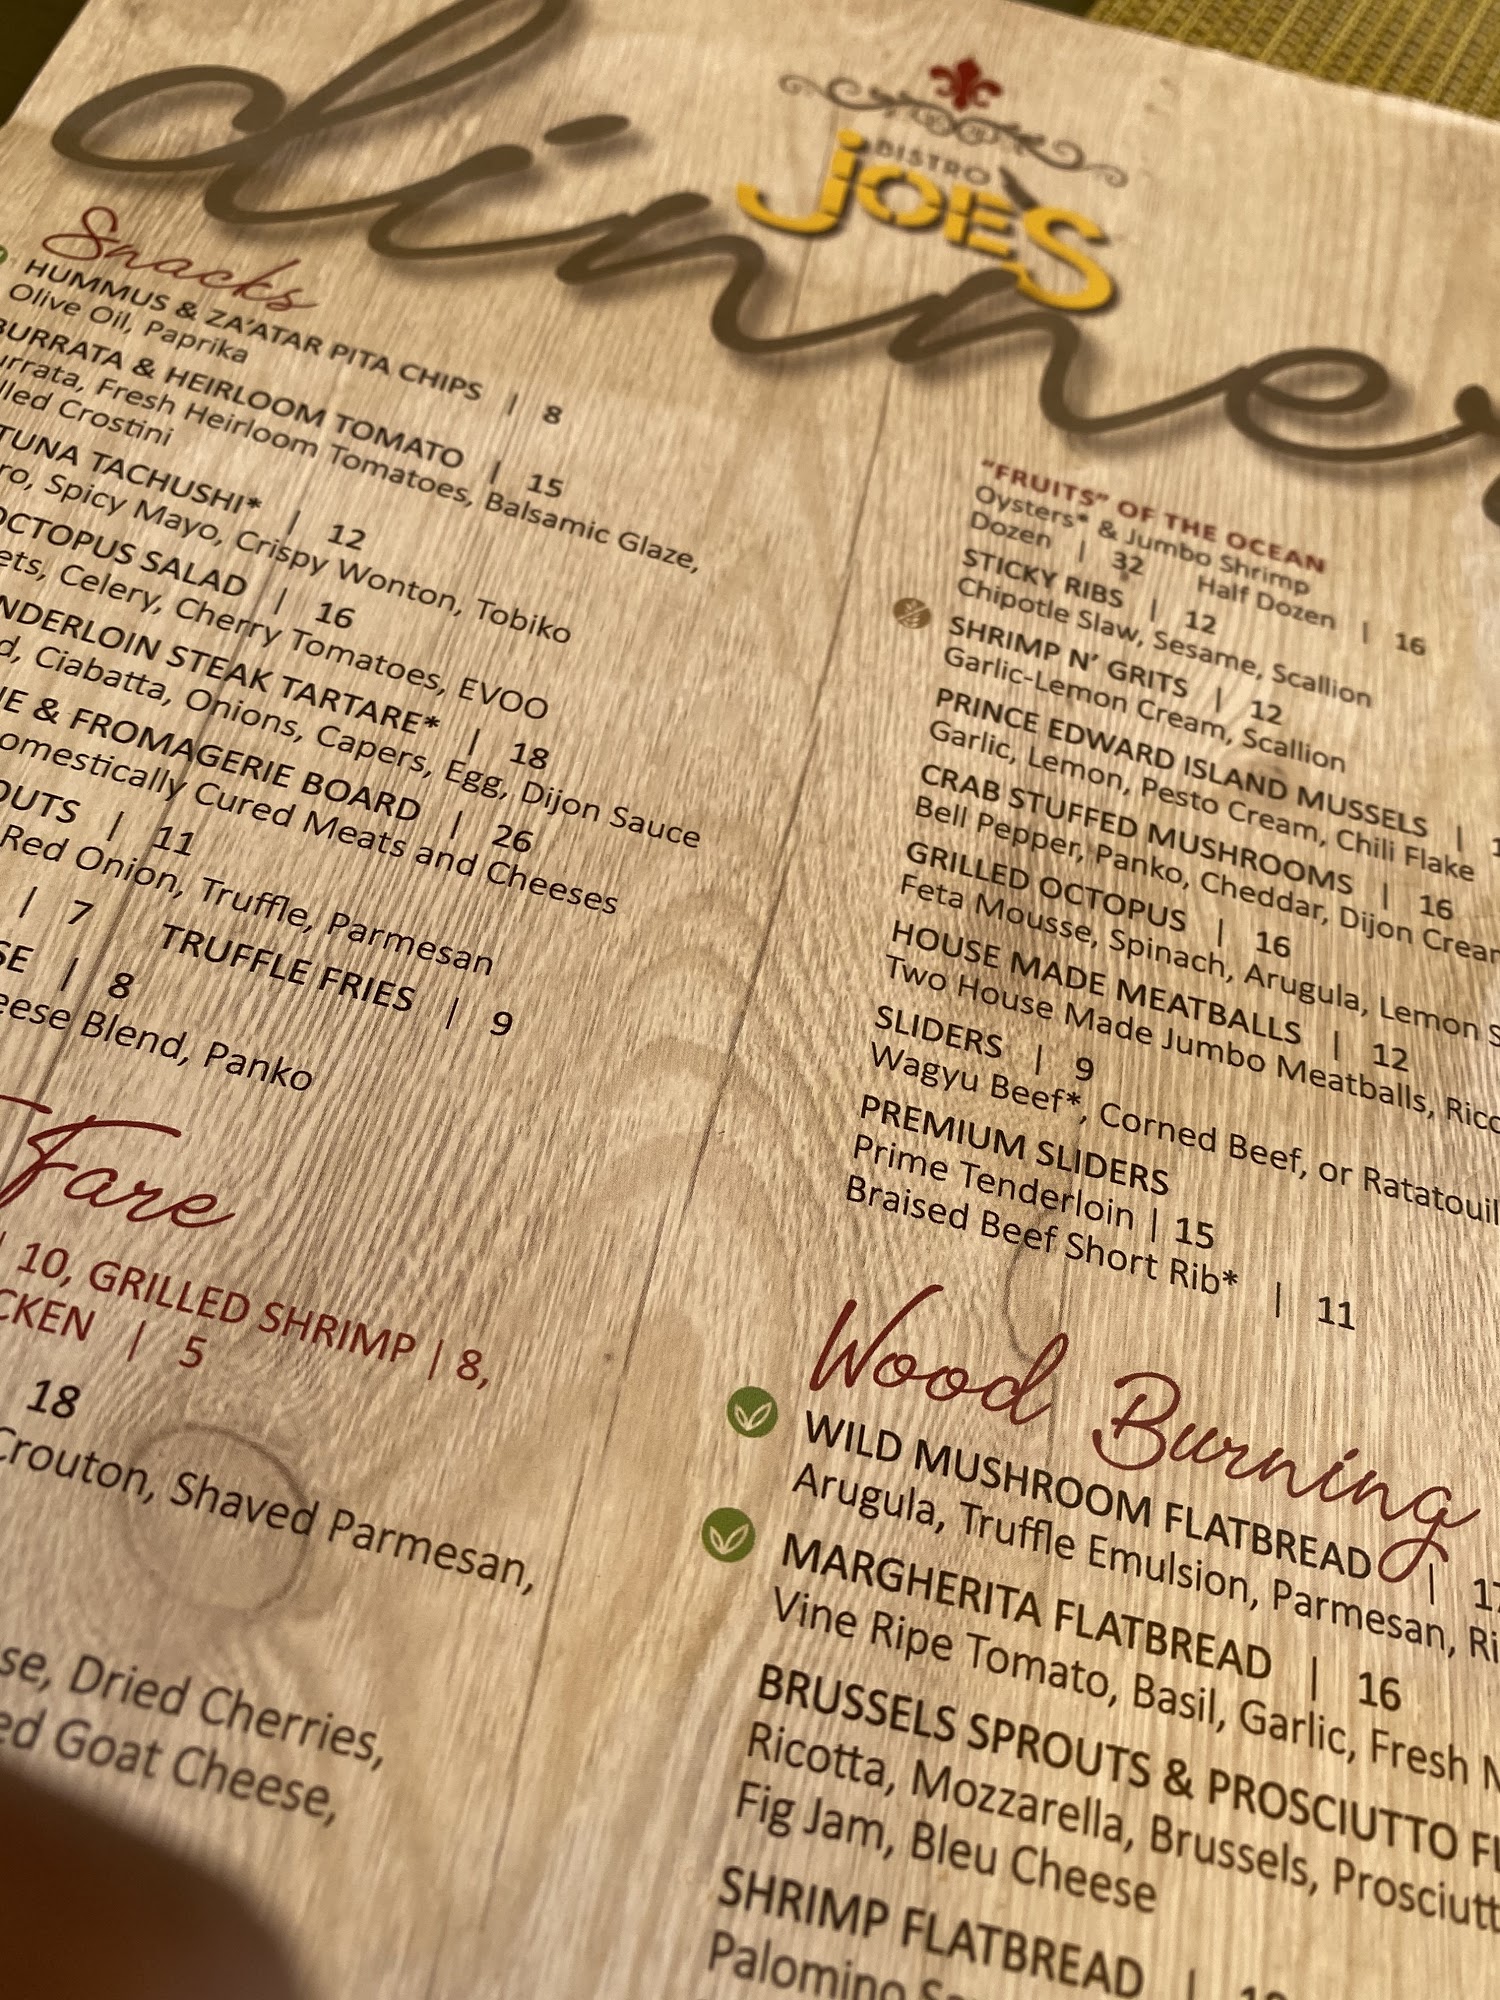 dinner
BISTRO
JOE'S
Snacks
HUMMUS & ZA'ATAR PITA CHIPS | 8
Olive Oil, Paprika
BURRATA & HEIRLOOM TOMATO | 15
Fresh Heirloom Tomatoes, Balsamic Glaze,
Crostini
TUNA TACHUSHI* | 12
Spicy Mayo, Crispy Wonton, Tobiko
OCTOPUS SALAD | 16
Celery, Cherry Tomatoes, EVOO
STEAK TARTARE* | 18
Ciabatta, Onions, Capers, Egg, Dijon Sauce
& FROMAGERIE BOARD | 26
Cured Meats and Cheeses
| 11
Red Onion, Truffle, Parmesan
| 7 TRUFFLE FRIES | 9
| 8
Blend, Panko
Fare
| 10, GRILLED SHRIMP | 8,
| 5
18
Crouton, Shaved Parmesan,
Dried Cherries,
Goat Cheese,
"FRUITS" OF THE OCEAN
Oysters* & Jumbo Shrimp
Dozen | 32 Half Dozen | 16
STICKY RIBS | 12
Chipotle Slaw, Sesame, Scallion
SHRIMP N' GRITS | 12
Garlic-Lemon Cream, Scallion
PRINCE EDWARD ISLAND MUSSELS |
Garlic, Lemon, Pesto Cream, Chili Flake
CRAB STUFFED MUSHROOMS | 16
Bell Pepper, Panko, Cheddar, Dijon
GRILLED OCTOPUS | 16
Feta Mousse, Spinach, Arugula, Lemon
HOUSE MADE MEATBALLS | 12
Two House Made Jumbo Meatballs,
SLIDERS | 9
Wagyu Beef*, Corned Beef, or
PREMIUM SLIDERS
Prime Tenderloin | 15
Braised Beef Short Rib* | 11
Wood Burning
WILD MUSHROOM FLATBREAD |
Arugula, Truffle Emulsion, Parmesan,
MARGHERITA FLATBREAD | 16
Vine Ripe Tomato, Basil, Garlic, Fresh
BRUSSELS SPROUTS & PROSCIUTTO
Ricotta, Mozzarella, Brussels,
Fig Jam, Bleu Cheese
SHRIMP FLATBREAD |
Palomino